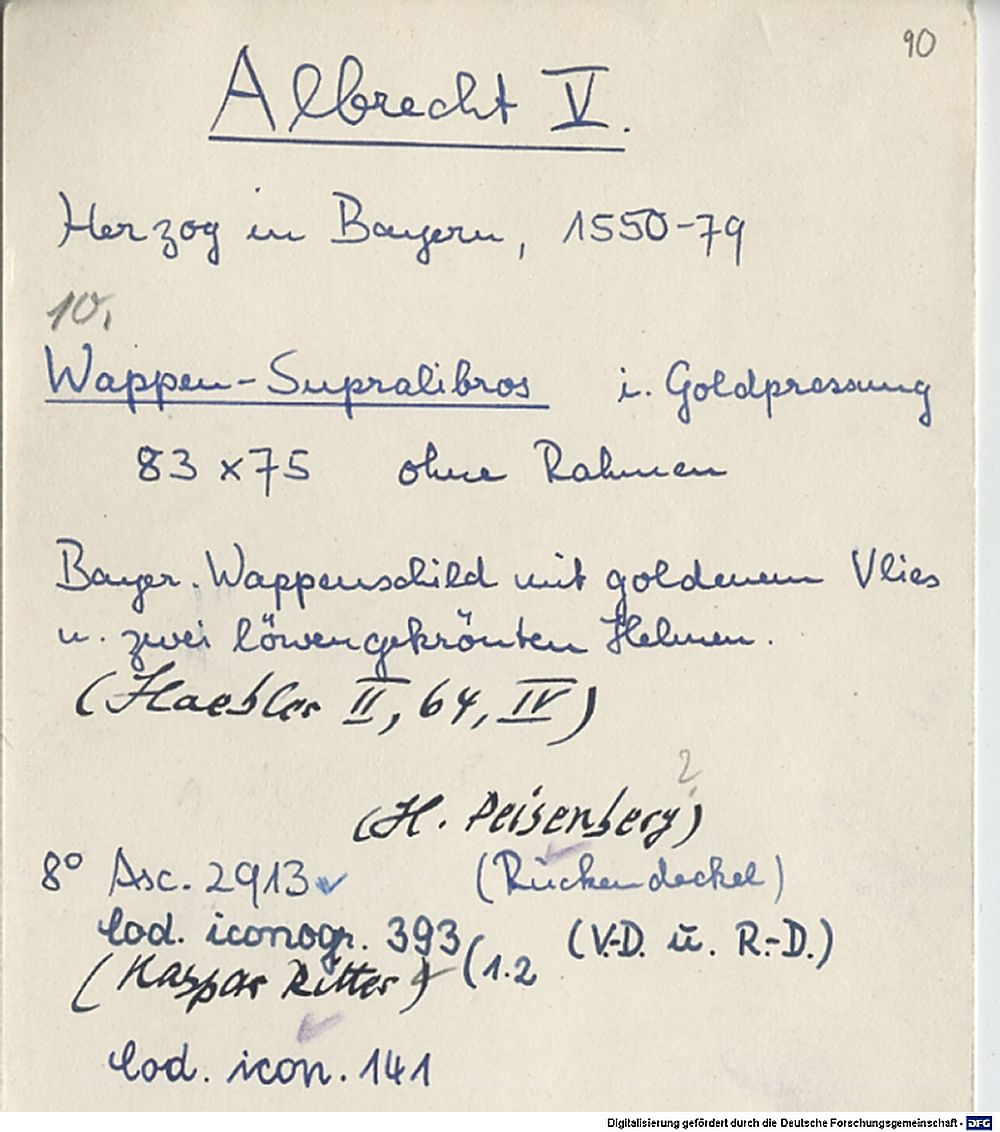 90
Albrecht V.
Herzog in Bayern, 1550-79
10.
Wappen-Supralibros i. Goldpressung
83 x 75 ohne Rahmen
Bayer. Wappenschild mit goldenem Vlies
u. zwei löwengekrönten Helmen.
(Haebler II, 64, IV)
?
(H. Peisenberg)
8° Asc. 2913 (Rückendeckel)
Cod. iconogr. 393 (1.2 (V.-D. u. R.-D.)
(Kaspar Ritter)
Cod. icon. 141
Digitalisierung gefördert durch die Deutsche Forschungsgemeinschaft - DFG